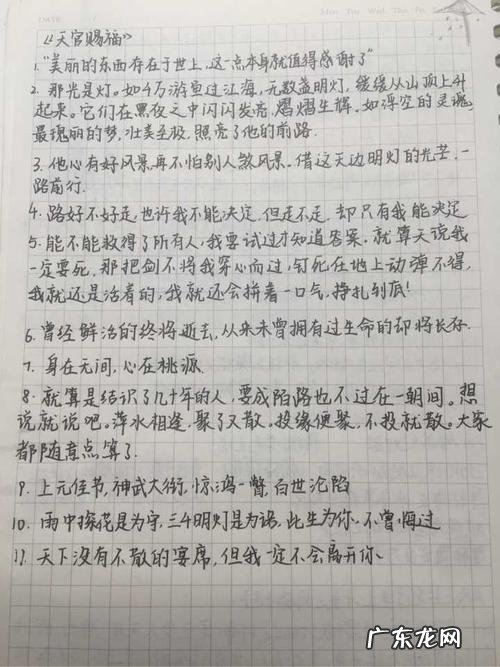 DATE
Mon Tue Wed Thu Fri
《天官赐福》
1. "美丽的东西存在于世上,这一点本身就值得感谢了"
2. 那光是灯。如千万游鱼过江海,无数盏明灯,缓缓从山顶上升
起来。它们在黑夜之中闪闪发亮,熠熠生辉,如浮空的灵魂,
最瑰丽的梦,壮美至极,照亮了他的前路.
3. 他心有好风景,再不怕别人煞风景。借这天边明灯的光芒,一
路前行.
4. 路好不好走,也许我不能决定,但走不走,却只有我能决定
5. 能不能救得了所有人,我要试过才知道答案。就算天说我
一定要死,那把剑不将我穿心而过,钉死在地上动弹不得,
我就还是活着的,我就还会拼着一口气,挣扎到底!
6. 曾经鲜活的终将逝去,从来未曾拥有过生命的却将长存.
7. 身在无间,心在桃源.
8. 就算是结识了几十年的人,要成陌路也不过在一朝间。想
说就说吧。萍水相逢,聚了又散。投缘便聚,不投就散。大家
都随意点算了.
9. 上元佳节,神武大街,惊鸿一瞥,百世沦陷
10. 雨中探花是为守,三千明灯是为诺,此生为你,不曾悔过
11. 天下没有不散的宴席,但我一定不会离开你、
广东龙网